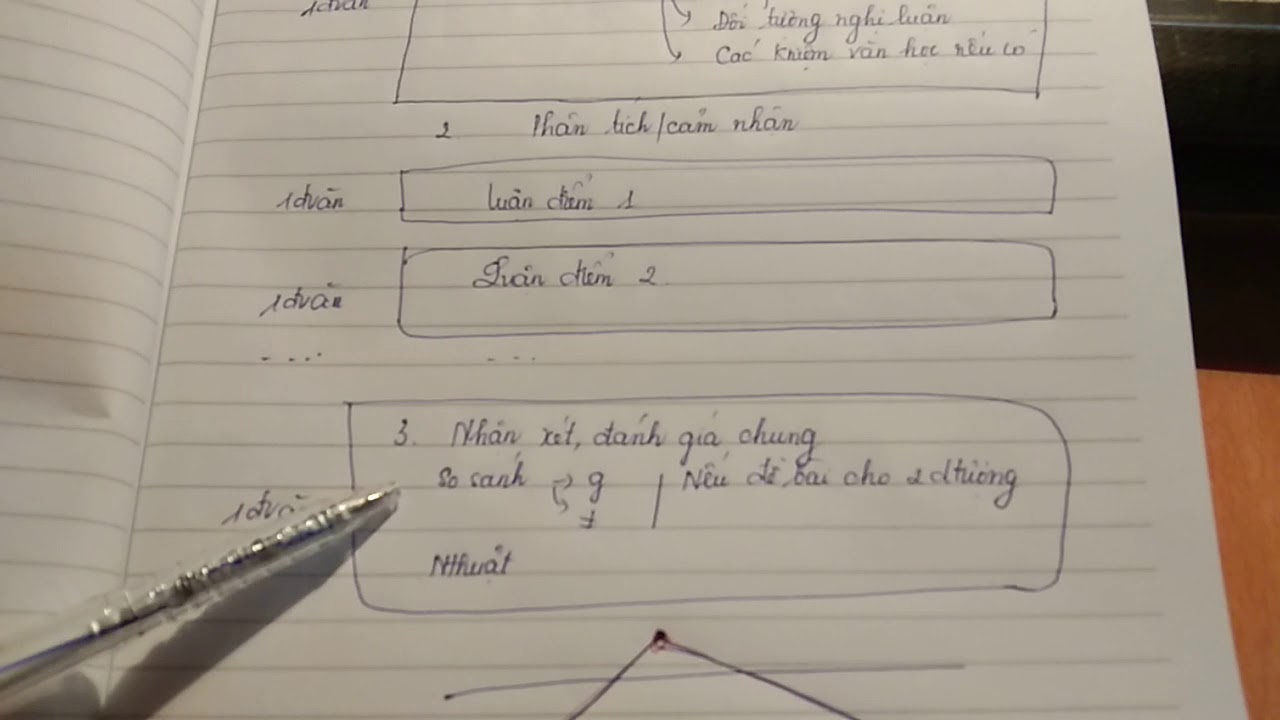 1đvăn
Đối tượng nghị luận
Các khiệm văn học nếu có
2 Phân tích/cảm nhận
1đvăn luận điểm 1
1đvăn Luận điểm 2
.... ...
3. Nhận xét, đánh giá chung
So sánh g | Nếu đề bài cho 2 đtượng
1đvă ≠
Nthuật